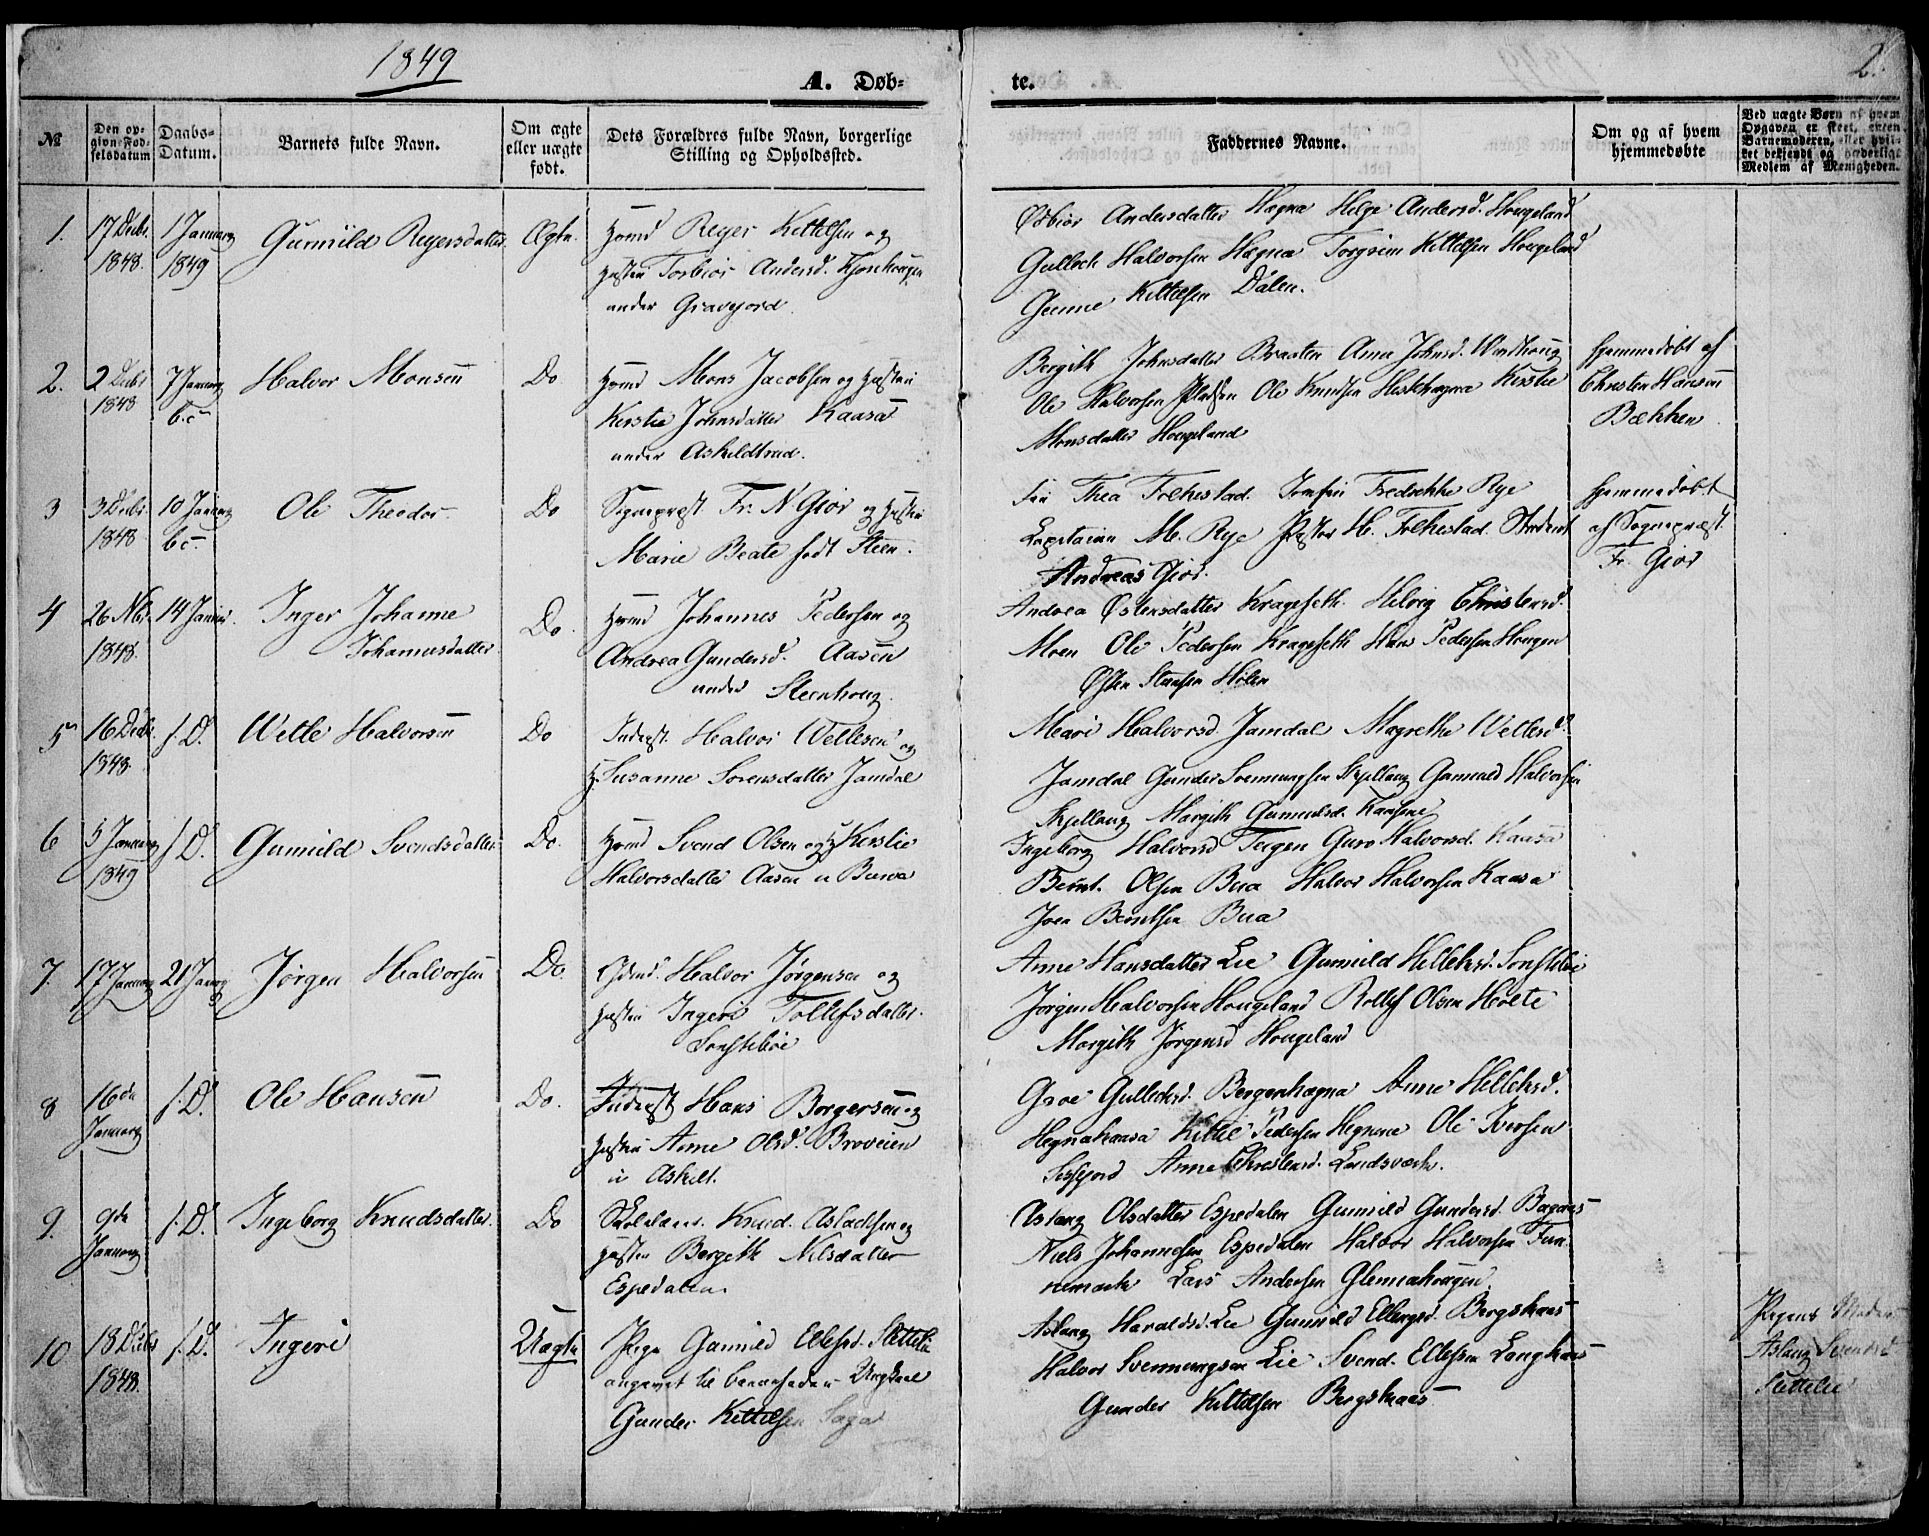 1849
A. Døb=
te.
2.
№
Den op-
givne Fød-
selsdatum
Daabs-
Datum.
Barnets fulde Navn.
Om ægte
eller uægte
født.
Dets Forældres fulde Navn, borgerlige
Stilling og Opholdssted.
Faddernes Navne.
Om og af hvem
hjemmedøbte
Ved uægte Børn af hvem
Opgaven er skeet, enten
Barnemoderen, eller hvil-
ket bekjendt og hæderligt
Medlem af Menigheden.
1.
17 Decbr.
1848.
1 Januar
1849
Gunnild Reyersdatter
Ægte.
Huusmd Reyer Kittelsen og
Hustru Torbiør Andersd.
under Gravejord.
Andersdatter Hægna Helge Andersd. Hougeland
Gulleck Halvorsen Hægna Torgrim Kittelsen Hougeland
Kittelsen Dalen.
2.
2 Decbr
1848
7 Januar
Halvor Monsen
Do
Huusmd Mons Jacobsen og Hustru
Kirstie Johnsdatter Kaasa
under Askildtrud.
Bergith Johnsdatter Braaten Anne Johnsd.
Ole Halvorsen Pladsen Ole Knudsen Kirstie
Monsdatter Hougeland
Hjemmedøbt af
Christen Hansen
Bækken
3
3 Decbr.
1848
10 Januar
Ole Theodor
Do
Sognepræst Fr. N Giør og Hustru
Marie Beate født Steen.
Thea Folkestad. Jomfru Fredrekke Rye
Capitain M. Rye Pastor H. Folkestad. Student
Andreas Giør.
Hjemmedøbt
af Sognepræst
Fr. Giør
4
26 Nbr.
1848.
14 Januar.
Inger Johanne
Johannesdatter
Do.
Huusmd Johannes Pedersen og
Andrea Gundersd. Aasen
under Steenhoug.
Andrea Østensdatter Kragseth. Helvig Christensd.
Moen Ole Pedersen Kragseth Hans Pedersen Hougen
Østen Hølen
5
16 Decbr.
1848.
f. D.
Wetle Halvorsen
Do
Inderst. Halvor Wetlesen og
H. Susanne Sorensdatter Jamdal
Mari Halvorsd. Jamdal Magrethe Wetlesd.
Jamdal Gunder Svennungsen Gunnuld Halvorsen
Margith Gunnulsd.
6
5 Januar
1849
f. D.
Gunnild Svendsdatter
Do.
Huusmd Svend Olsen og H. Kirstie
Halvorsdatter Aasen u
Ingeborg Halvorsd Guro Halvorsd. Kaasa
Bernt. Olsen Bua Halvor Halvorsen Kaasa
Joen Berntsen Bua
7.
17 Januar
21 Januar
Jørgen Halvorsen
Do.
Gdmd. Halvor Jørgensen og
Hustru Ingeri Tollefsdatter.
Sonstebøe
Anne Hansdatter Lie Gunnild Helleksd. Sonstebøe
Jørgen Halvorsen Hougeland Rollef Olsen Holte
Margith Jørgensd Hougeland
8
16de
Januar
f. D.
Ole Hansen
Do.
Inderst Hans Borgersen og
Hustru Anne Olsd. Broveien
u Askilt.
Groe Gulleksd. Bergenhægna Anne Helleksd.
Hegnakaasa Kittil Pedersen Hegnene Ole Iversen
Anne Christensd. Landsværk.
9.
9de
Januar
f. D.
Ingeborg Knudsdatter.
Do
Skolelærer Knud. Aslachsen og
Hustru Bergith Nilsdatter
Espedalen.
Aslaug Olsdatter Espedalen Gunnild Gundersd.
Niels Johannesen Espedalen Halvor Halvorsen Fun-
nemark Lars Andersen
10
18 Decbr
1848.
f. D.
Ingeri
Uægte
Pige Gunnild Ellefsd. Stettelie
angivet til barnefader Ungkarl
Gunder Kittelsen Saga
Aslaug Haraldsd. Lie Gunnild Bergskaas
Halvor Svennungsen Lie Svend. Ellefsen Langkaas
Gunder Kittelsen Bergskaas
Pigens Moder
Aslaug Svendsd
Stettelie